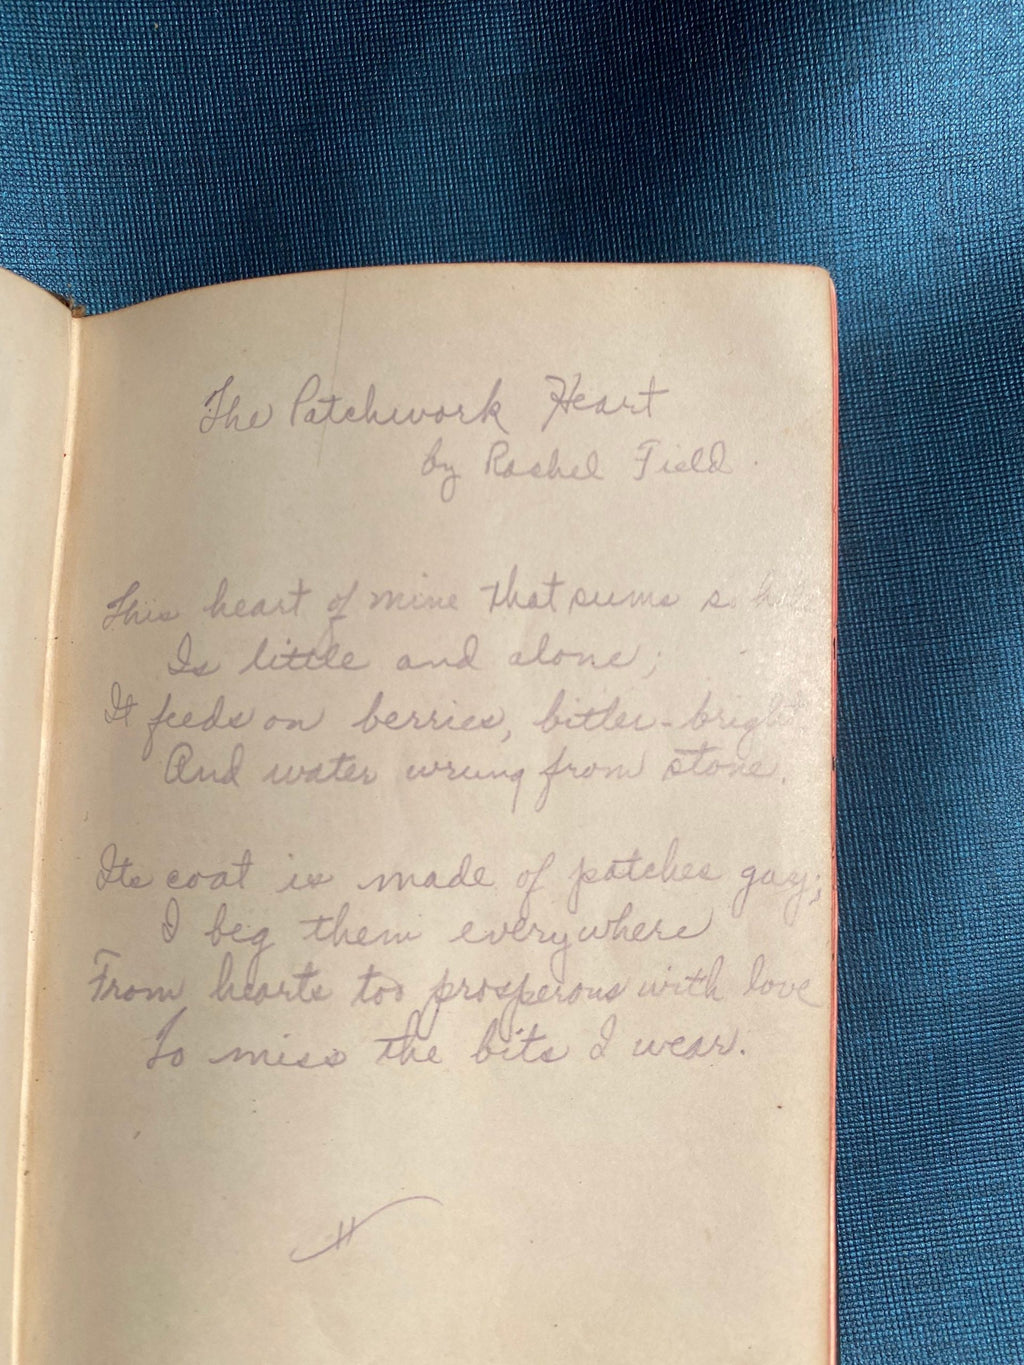 The Patchwork Heart
by Rachel Field
This heart of mine that sums
Is little and alone;
It feeds on berries, bitter-bright
And water wrung from stone.
Its coat is made of patches gay;
I beg them everywhere
From hearts too prosperous with love
To miss the bits I wear.